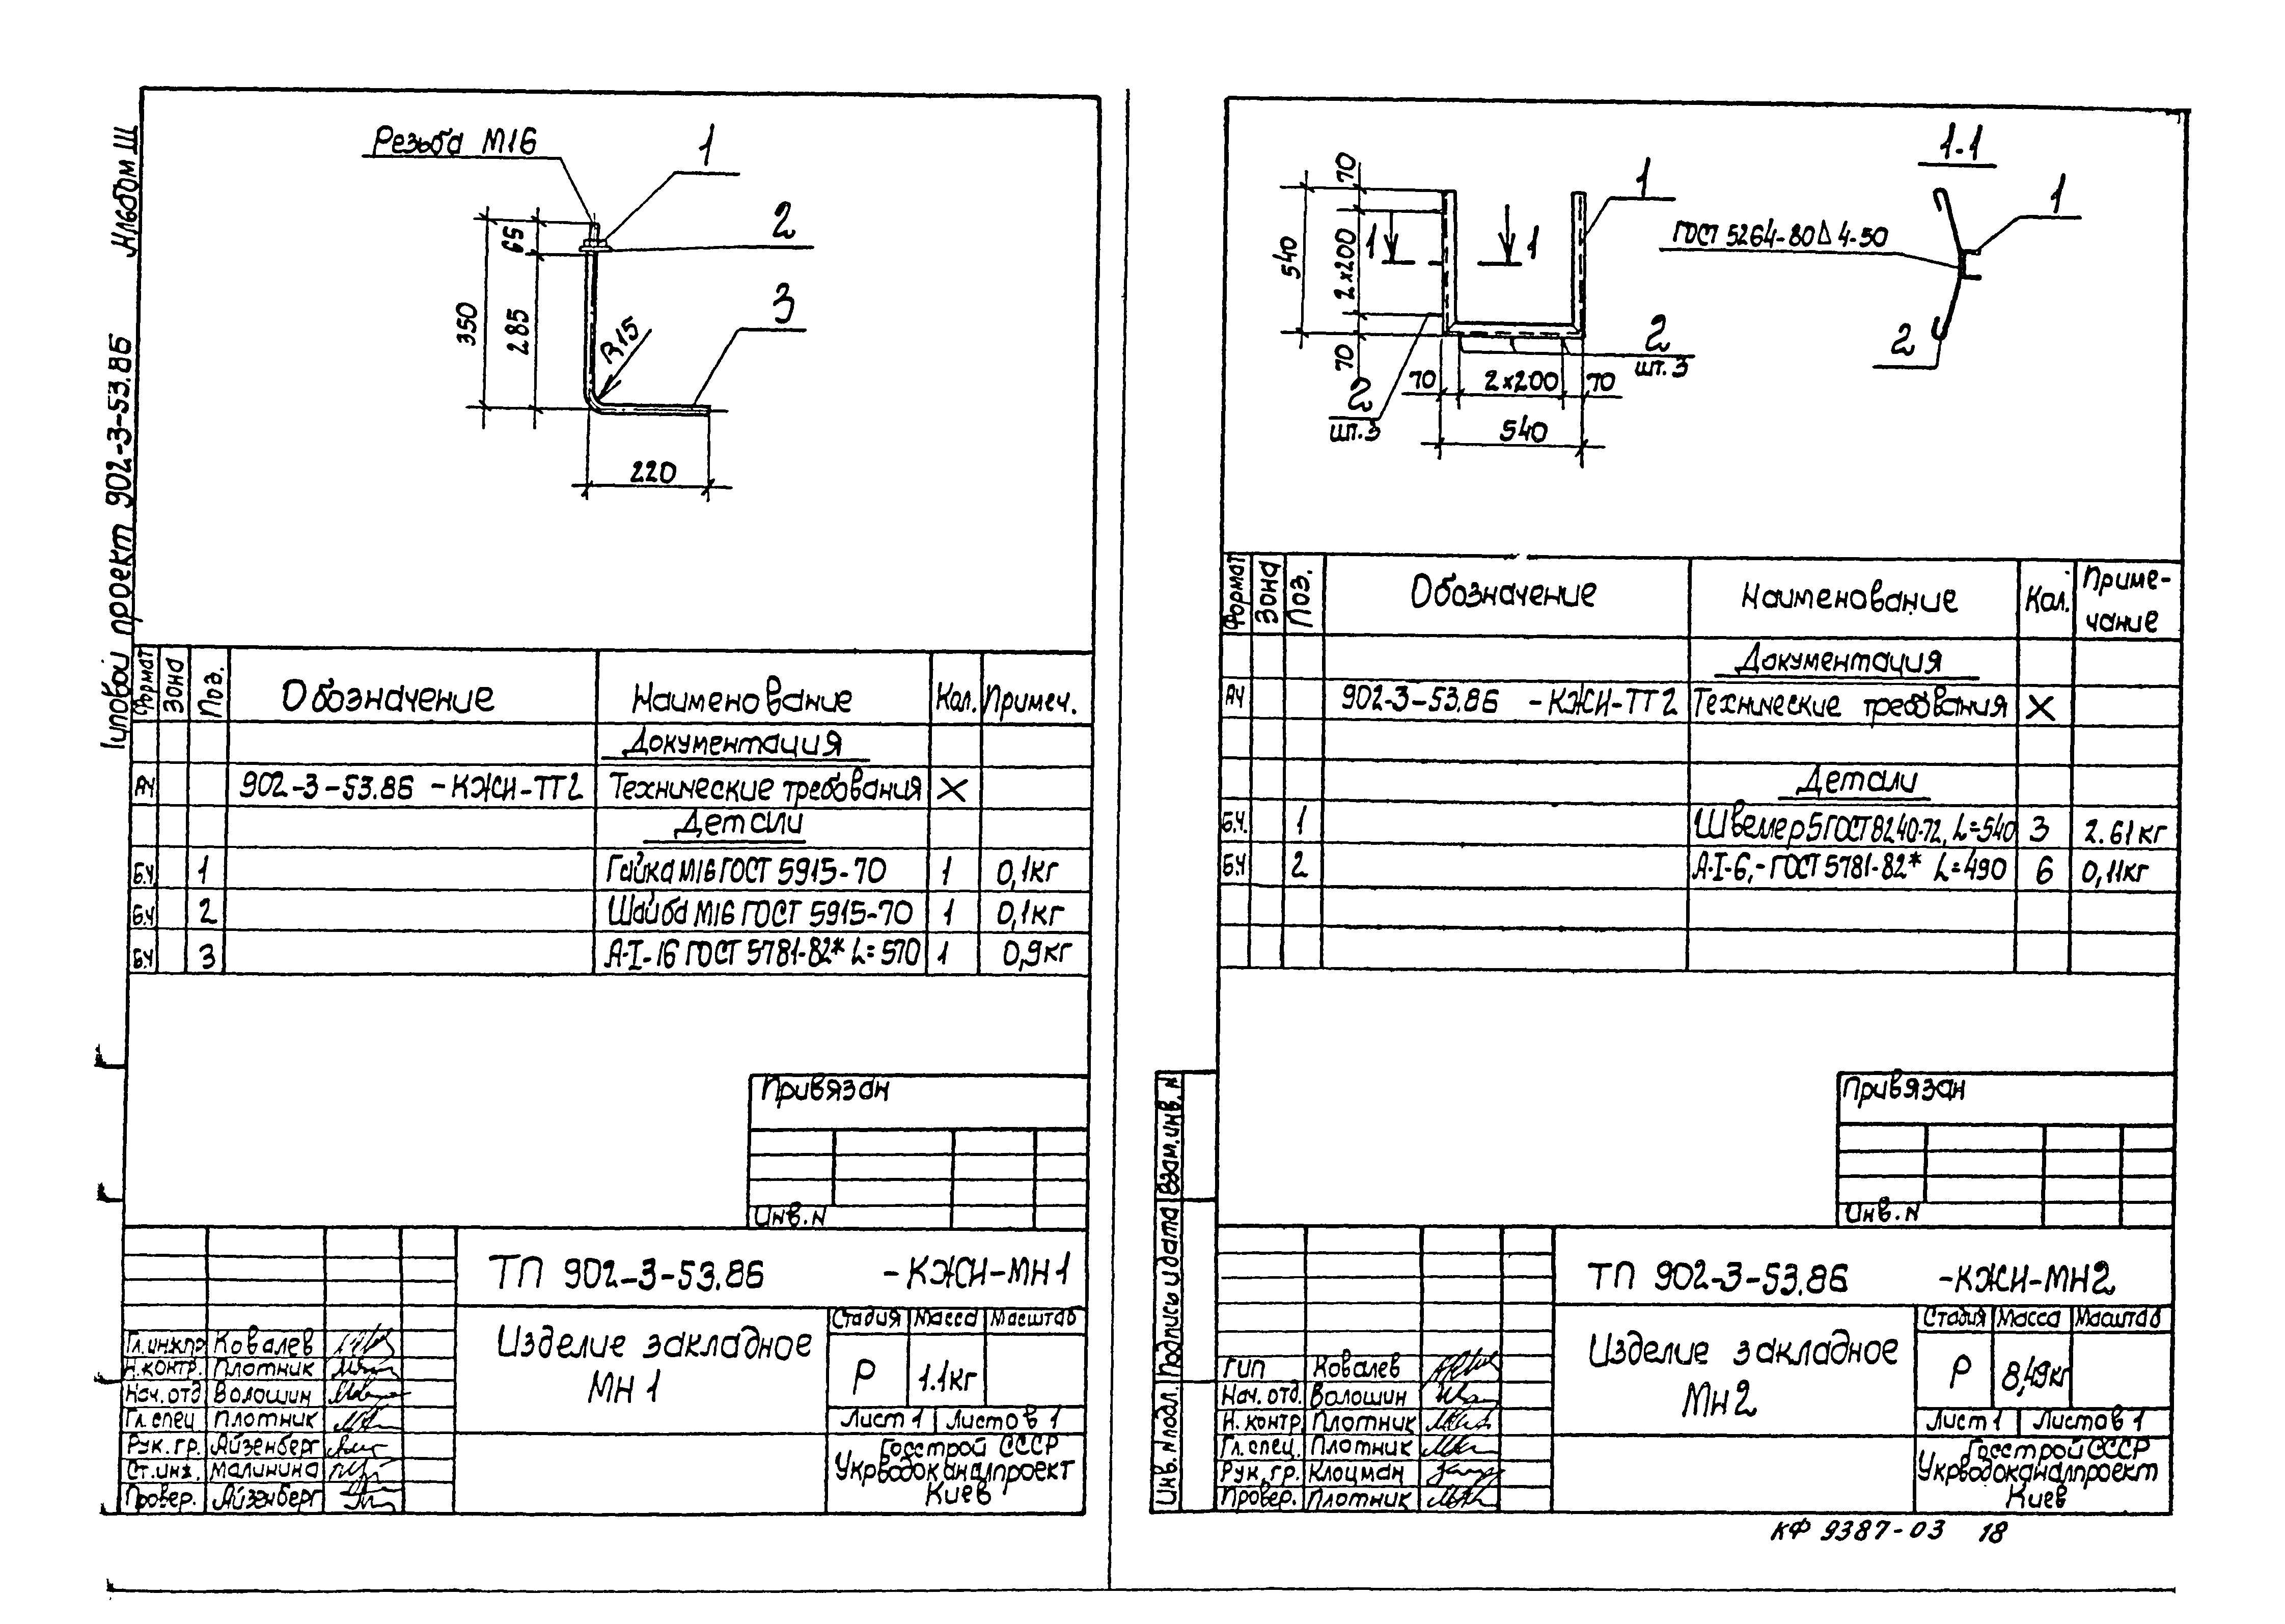 Типовой проект 902-3-53.86 Альбом III
Резьба М16
1
2
3
65
350
285
R15
220
Формат Зона Поз. Обозначение Наименование Кол. Примеч.
Документация
А4 902-3-53.86 -КЖИ-ТТ2 Технические требования X
Детали
Б.Ч 1 Гайка М16 ГОСТ 5915-70 1 0,1кг
Б.Ч 2 Шайба М16 ГОСТ 5915-70 1 0,1кг
Б.Ч 3 А-I-16 ГОСТ 5781-82* L=570 1 0,9кг
Привязан
Инв.N
ТП 902-3-53.86 -КЖИ-МН1
Изделие закладное
МН1
Стадия Масса Масштаб
Р 1.1кг
Лист 1 Листов 1
Госстрой СССР
Укрводоканалпроект
Киев
Гл.инж.пр Ковалев
Н.контр. Плотник
Нач.отд Волошин
Гл.спец Плотник
Рук.гр. Айзенберг
Ст.инж. Малинина
Провер. Айзенберг
70
540
2х200
70
1 1
1
2
шт.3
2
шт.3
70 2х200 70
540
1-1
ГОСТ 5264-80Δ 4-50
1
2
Формат Зона Поз. Обозначение Наименование Кол. Приме-
чание
Документация
А4 902-3-53.86 -КЖИ-ТТ2 Технические требования X
Детали
Б.Ч. 1 Швеллер 5 ГОСТ 8240-72, L=540 3 2.61кг
Б.Ч 2 А-I-6,-ГОСТ 5781-82* L=490 6 0,11кг
Привязан
Инв.N
Инв.N подл. Подпись и дата Взам.инв.N
ТП 902-3-53.86 -КЖИ-МН2
Изделие закладное
МН2
Стадия Масса Масштаб
Р 8,49кг
Лист 1 Листов 1
Госстрой СССР
Укрводоканалпроект
Киев
ГИП Ковалев
Нач.отд. Волошин
Н.контр Плотник
Гл.спец. Плотник
Рук.гр. Клоцман
Провер. Плотник
КФ 9387-03 18